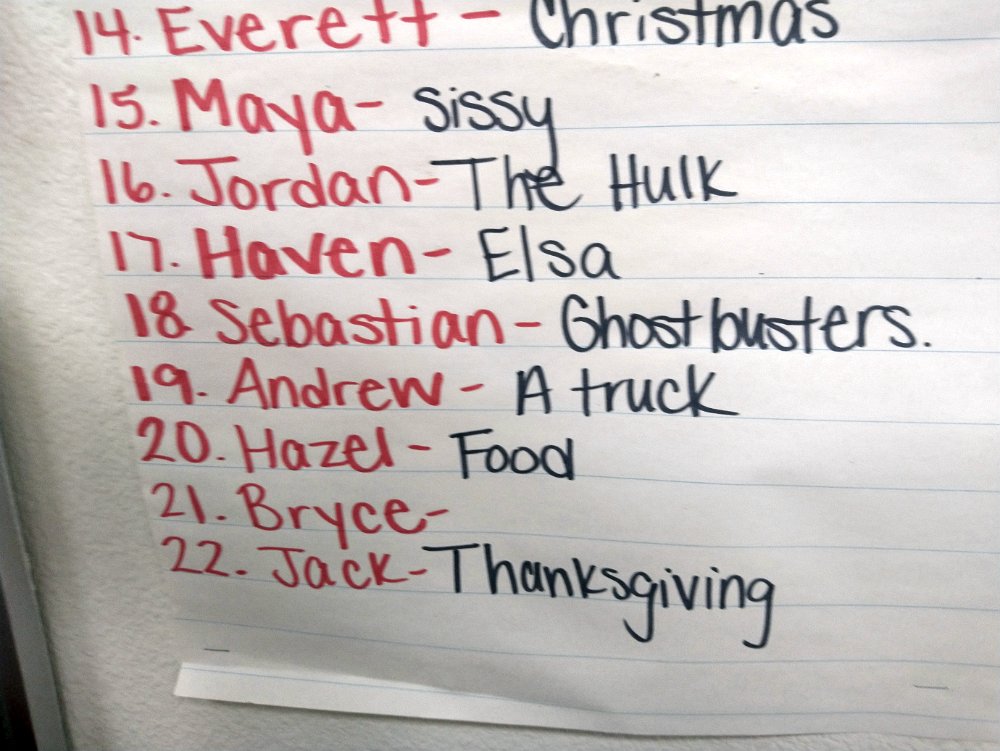 14. Everett - Christmas
15. Maya- Sissy
16. Jordan- The Hulk
17. Haven- Elsa
18 Sebastian - Ghostbusters.
19. Andrew - A truck
20. Hazel - Food
21. Bryce-
22. Jack- Thanksgiving